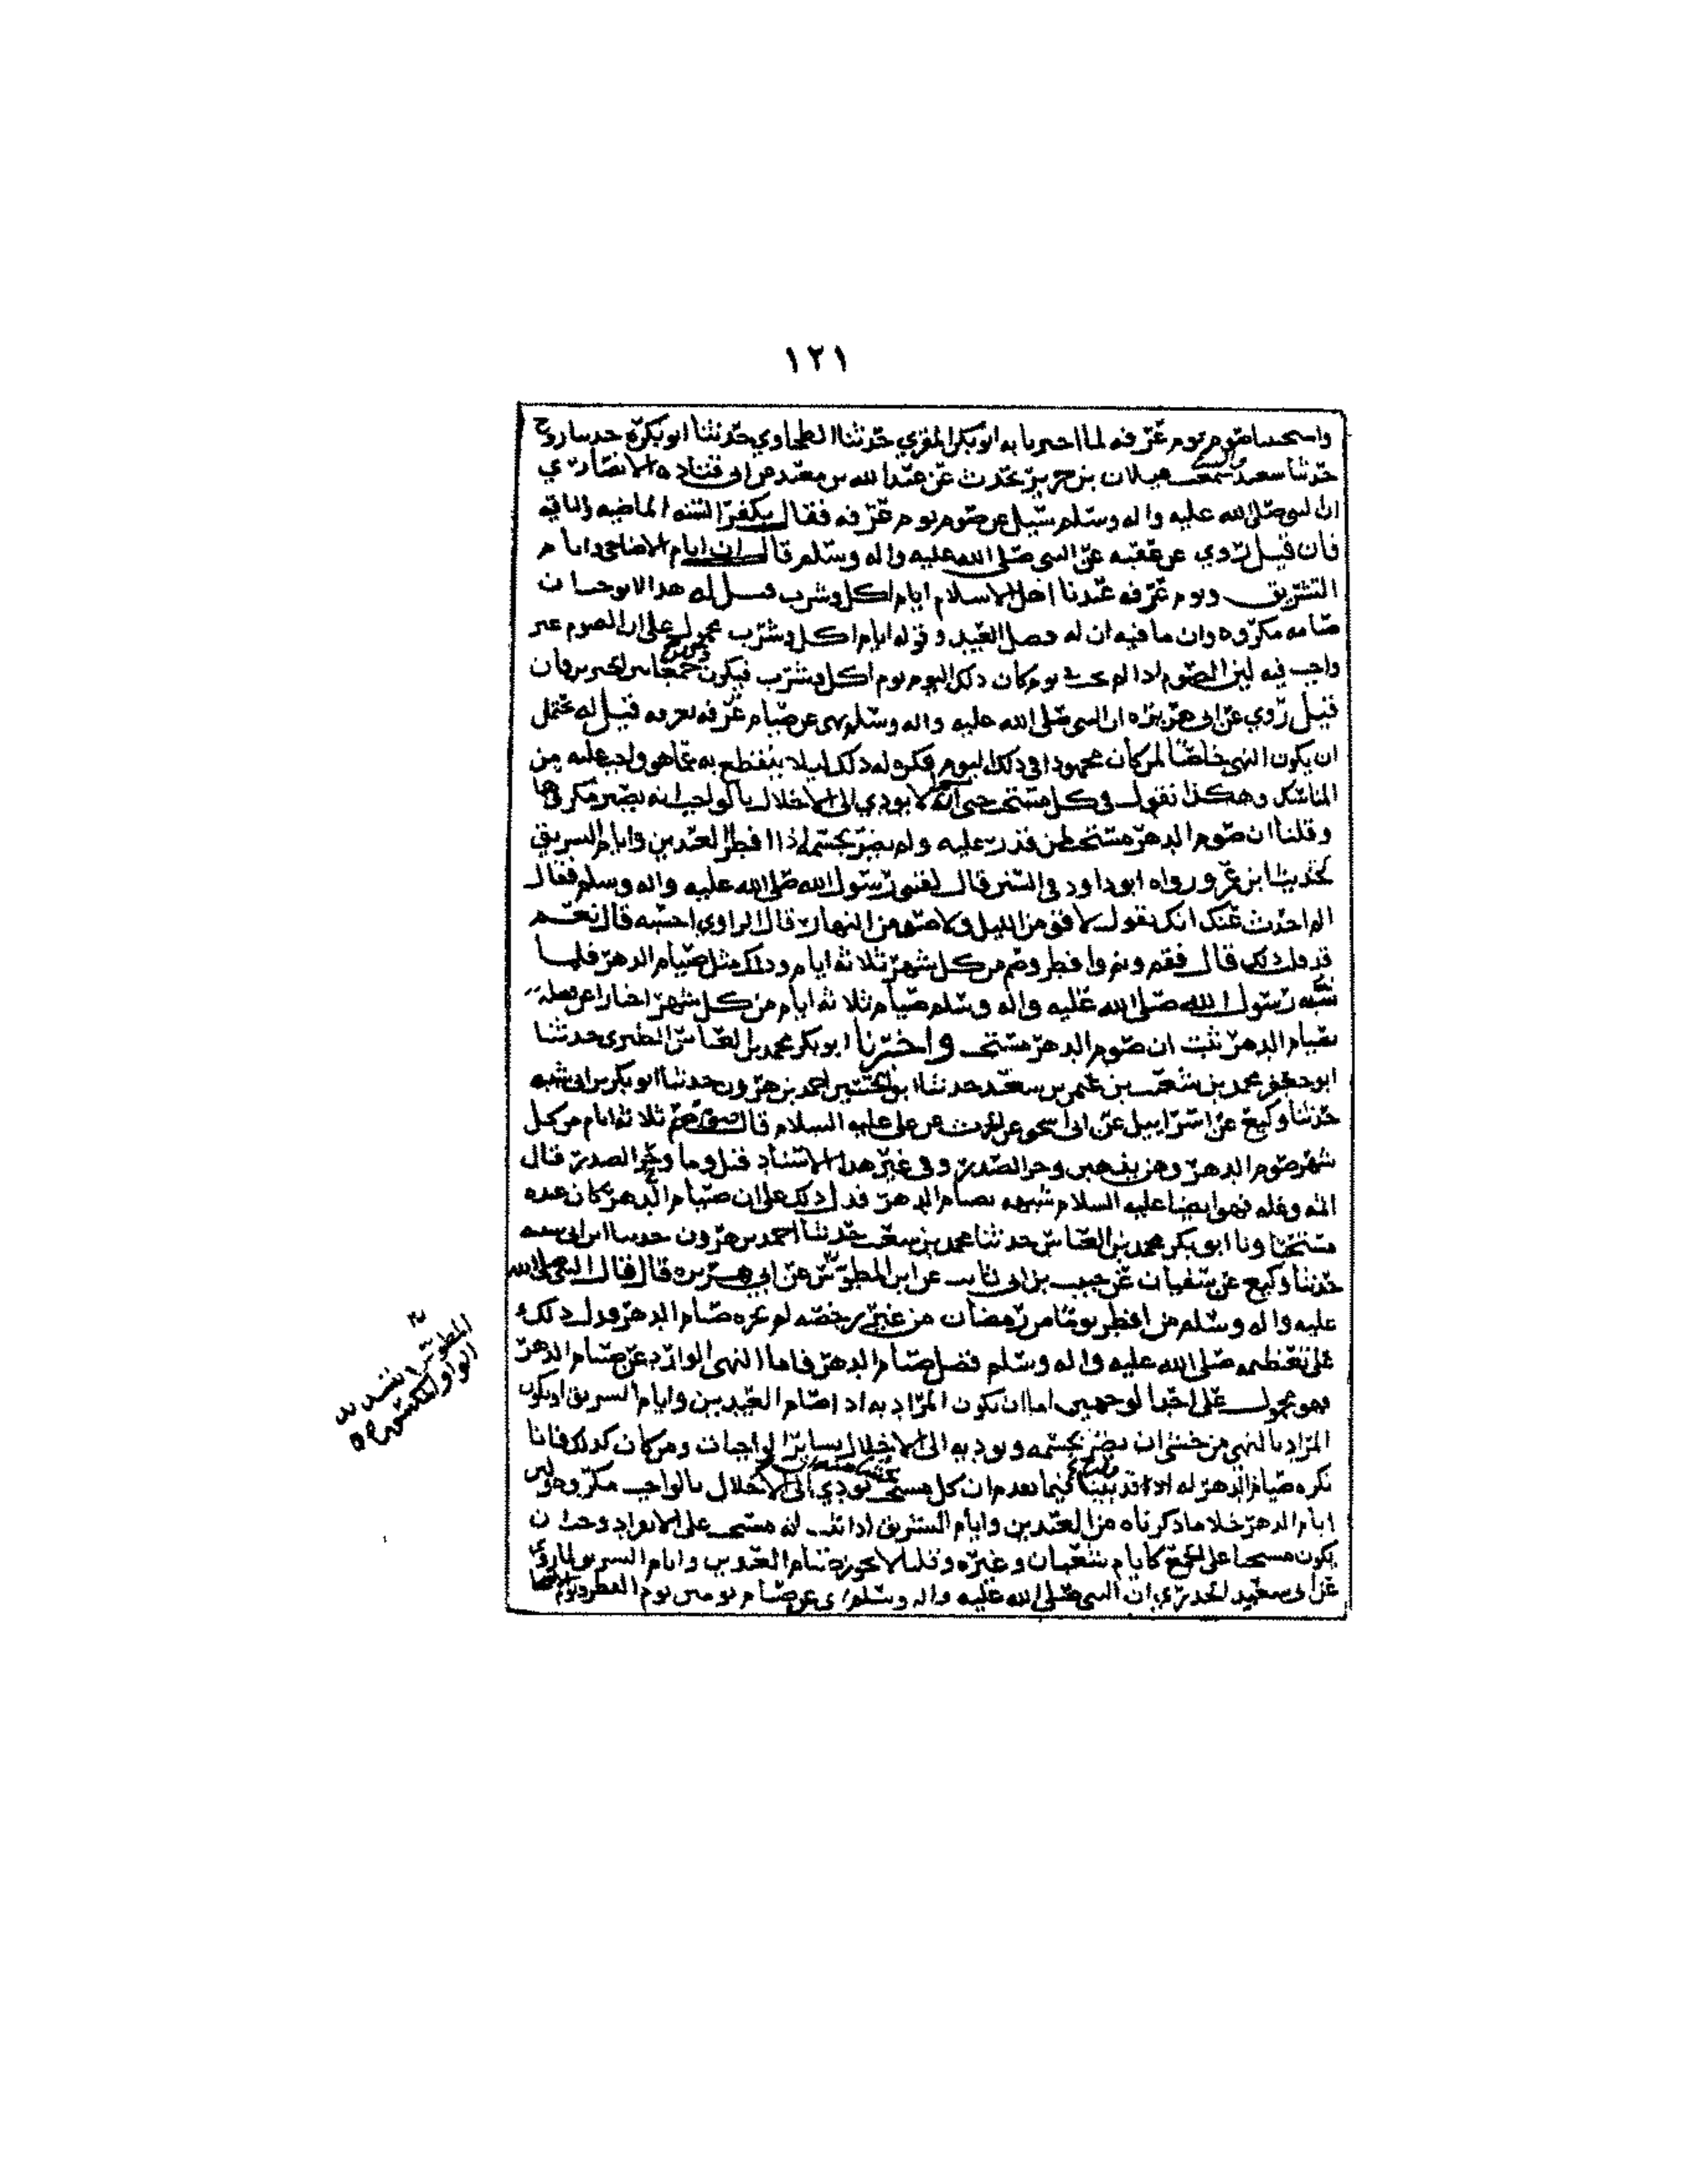 ١٢١
واستحببنا صوم يوم عرفه لما اخبرنا به ابو بكر المقري حدثنا الطحاوي حدثنا ابو بكرة حدثنا روح
حدثنا سعيد سمعت غيلان بن جرير يحدث عن عبد الله بن معبد عن ابي قتاده الانصاري
ان النبي صلى الله عليه واله وسلم سئل عن صوم يوم عرفه فقال يكفر السنه الماضيه والباقيه
فان قيل روي عن عقبه عن النبي صلى الله عليه واله وسلم قال ان ايام الاضاحي وايام
التشريق ويوم عرفه عيدنا اهل الاسلام ايام اكل وشرب قيل له هذا لا يوجب ان
صيامه مكروه وان ما فيه ان له فضل العيد وقوله ايام اكل وشرب محمول على ان الصوم غير
واجب فيه لان الصوم اذا لم يجب في يوم كان ذلك اليوم يوم اكل وشرب فيكون جمعا بين الخبرين فان
قيل روي عن ابي هريره ان النبي صلى الله عليه واله وسلم نهى عن صيام عرفه بعرفه قيل له يحتمل
ان يكون النهي خاصا لمن كان مجهودا في ذلك اليوم فكره له ذلك ليلا ينقطع به عما هو واجب عليه من
المناسك وهكذا نقول في كل مستحب يودي الى الاخلال بالواجب انه يصير مكروها
وقلنا ان صوم الدهر مستحب لمن قدر عليه ولم يضر بجسمه اذا افطر العيدين وايام التشريق
لحديث ابن عمر ورواه ابو داود في السنن قال لقيني رسول الله صلى الله عليه واله وسلم فقال
الم احدث عنك انك تقول لاقومن الليل ولاصومن النهار قال الراوي احسبه قال نعم
قد قلت ذلك قال فقم ونم وافطر وصم من كل شهر ثلاثه ايام وذلك مثل صيام الدهر فلما
شبه رسول الله صلى الله عليه واله وسلم صيام ثلاثه ايام من كل شهر اخبارا عن فضله
بصيام الدهر ثبت ان صوم الدهر مستحب واخبرنا ابو بكر محمد بن العباس الطبري حدثنا
ابو جعفر محمد بن شعيب بن عمر بن سعيد حدثنا ابو الحسين احمد بن هرون حدثنا ابو بكر بن ابي شيبه
حدثنا وكيع عن اسراييل عن ابي اسحق عن الحرث عن علي عليه السلام قال صوم ثلاثه ايام من كل
شهر صوم الدهر وهن يذهبن وحر الصدر وفي غير هذا الاسناد قيل وما وحر الصدر قال
اثمه وغله فهو ايضا عليه السلام شبهه بصيام الدهر فدل ذلك على ان صيام الدهر كان عنده
مستحبا ونا ابو بكر محمد بن العباس حدثنا محمد بن شعيب حدثنا احمد بن هرون حدثنا ابن ابي شيبه
حدثنا وكيع عن سفيان عن حبيب بن ابي ثابت عن ابن المطوس عن ابي هريره قال قال النبي صلى الله
عليه واله وسلم من افطر يوما من رمضان من غير رخصه لم يجزه صيام الدهر فدل ذلك
على تعظيمه صلى الله عليه واله وسلم فضل صيام الدهر فاما النهي الوارد عن صيام الدهر
فهو محمول على احد الوجهين اما ان يكون المراد به اذا صام العيدين وايام التشريق او يكون
المراد بالنهي من خشي ان يضر بجسمه ويودي به الى الاخلال بساير الواجبات ومن كان كذلك فانا
نكره صيام الدهر له قد بينا فيما تقدم ان كل مستحب يودي الى الاخلال بالواجب مكروه وليس
ايام الدهر خلا ما ذكرناه من العيدين وايام التشريق مستحب على الانفراد وجب ان
يكون مستحبا على الجمع كايام شعبان وغيره وقلنا لا يجوز صيام العيدين وايام التشريق لما روي
عن ابي سعيد الخدري ان النبي صلى الله عليه واله وسلم نهى عن صيام يومين يوم الفطر ويوم الاضحى
المطوس بتشديد
الواو المكسوره